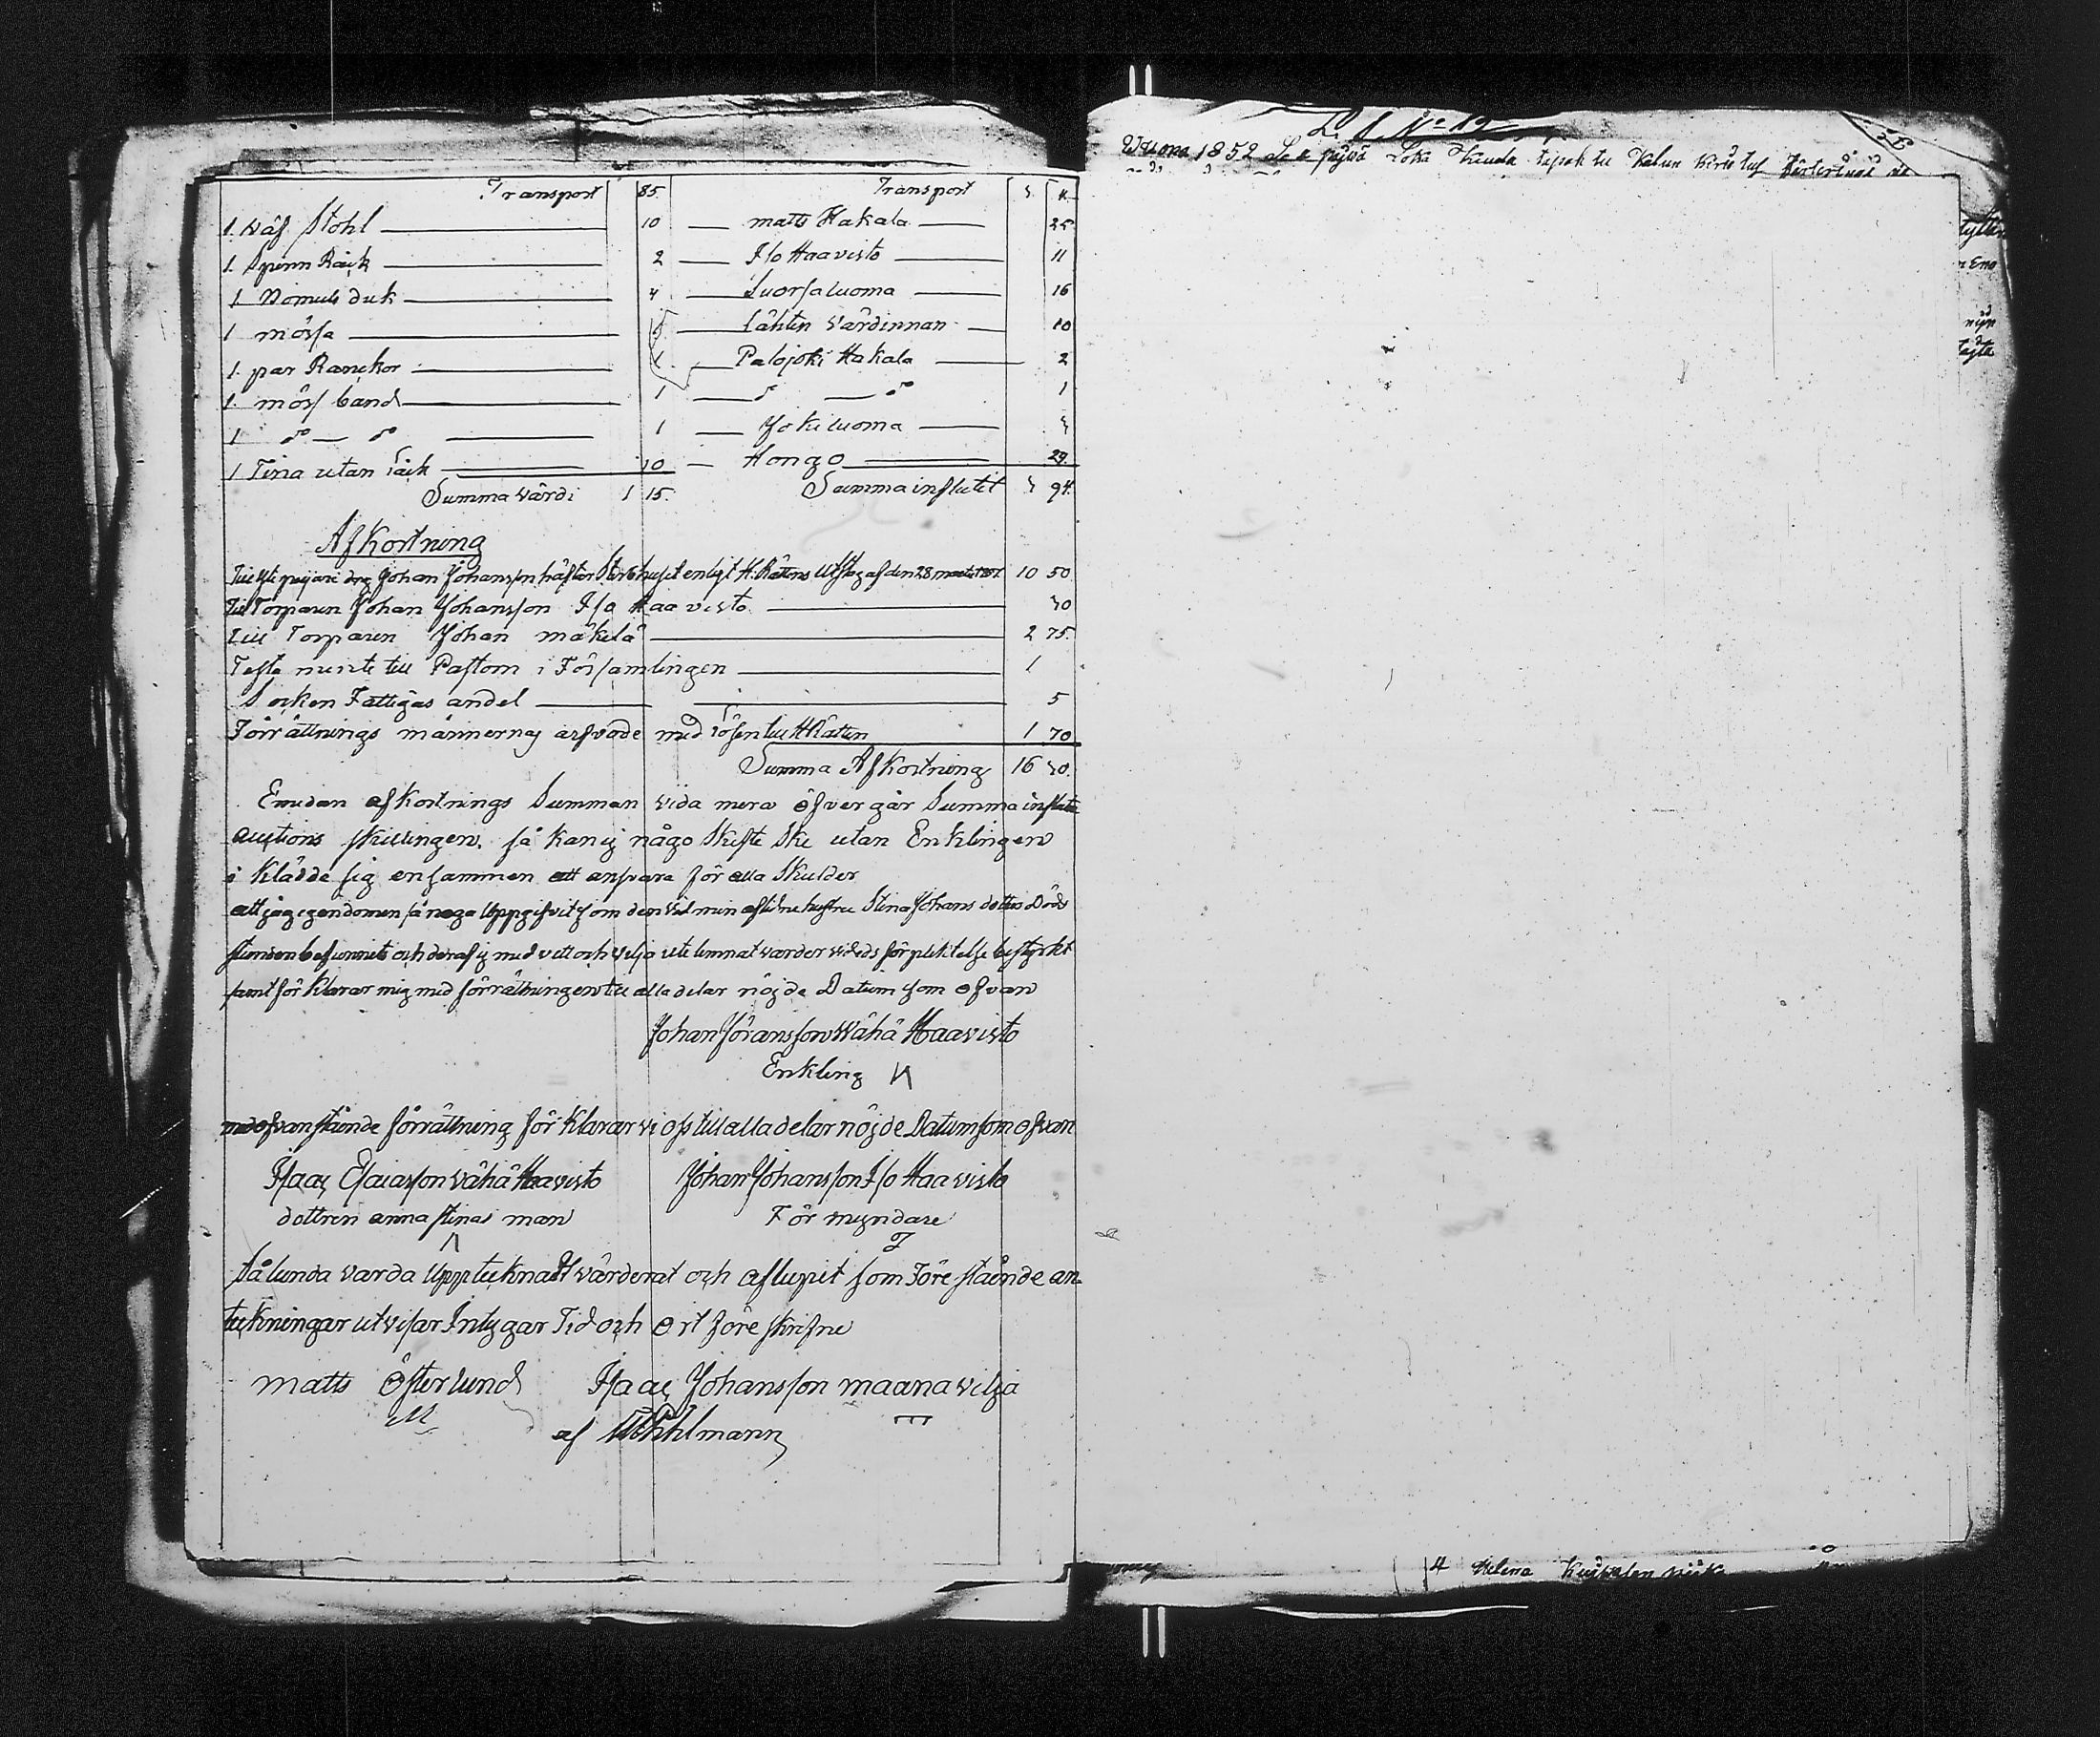 Transport 85. Transport
1. Wäf Stohl 10 matts Hakala 25
1. Spinn Råck 2 Iso Haavisto 11
1 Bomuls duk 4 Luorsaluoma 16
1 mössa Lähten Värdinnan 10
1. par Ranckor 1 Palojoki Hakala 2
1. mös band 1 do do 1
1 do do 1 Jokiluoma
1 Tina utan låck 10 Hongo 29.
Summa värdi 1 15. Summa influtit 94.
Afkortning
Johan Johansson häftar Sterbhuset enligt H. Rättens Utslag af den 28 10 50
Till Torparen Johan Johansson Iso Haavisto
Till Torparen Johan mäkelä 2 75.
till Pastorn i Församlingen 1
Socken Fattigas andel 5
Förrättnings männernas arfvode med lösen till HRätten 1 70
Summa Afkortning 16
Emedan afkortnings Summan vida mera öfver går Summa
auctions skillingen. så kan ej någo Skifte Ske utan Enklingen
i klädde sig ensammen att ansvara för alla Skulder
att jag egendomen så noga Uppgifvit som den vid min aflidne hustru Stina Johans dotters Döds
stunden befunnits och deraf ej med vett och vilja utelemnat varder vid Eds förpliktelse bestyrkt
samt för klarar mig med förrättningen till alla delar nöjde Datum som ofvan
Johan Jöransson Wähä Haavisto
Enkling
med ofvanstående förrättning för klarar vi oss till alla delar nöjde Datum som ofvan
Isaac Esaiasson Wähä Haavisto Johan Johansson Iso Haavisto
dottren anna stinas man För myndare
Sålunda varda Upptecknadt värderat och aflupit som Före stående an
teckningar utvisar Intygar Tid och ort före skrifne
matts Österlund Isaac Johansson maanavilja
M
af Wihlmann
L. A No 19
28
Wuona 1852 päjvä
4 Helena